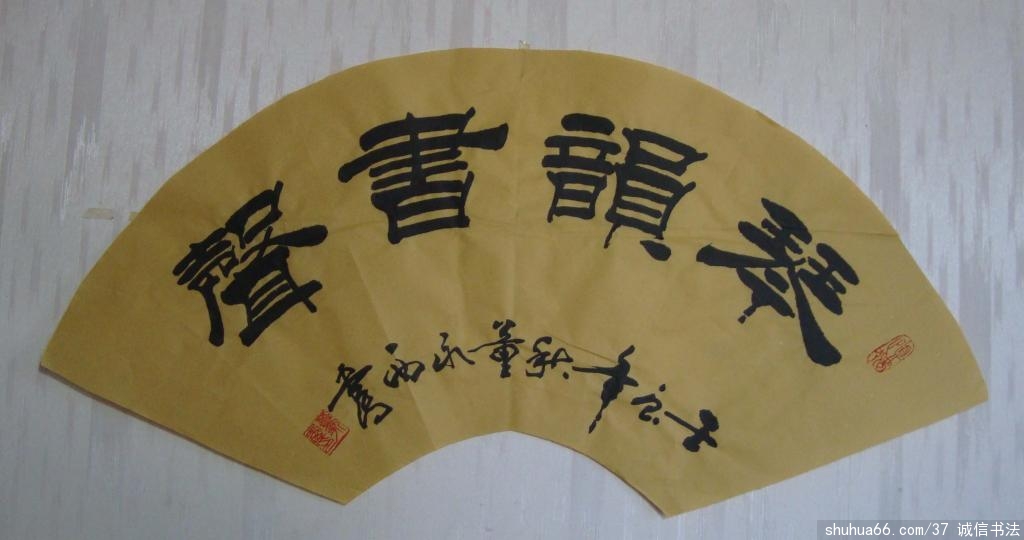 琴韻書聲
壬辰年秋董永西寫
shuhua66.com/37 诚信书法